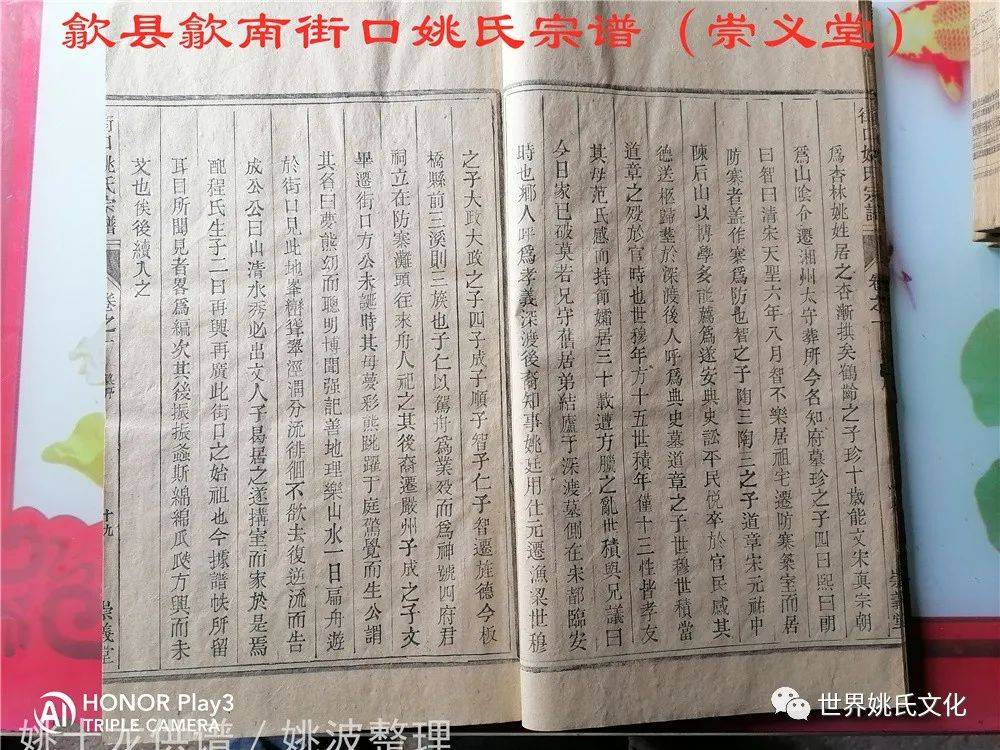 歙县歙南街口姚氏宗谱（崇义堂）
街口姚氏宗譜
卷之
崇義堂
爲杏林姚姓居之杏漸拱矣鶴齡之子珍十歲能文宋真宗朝
爲山陰令遷湘州太守葬所今名知府墓珍之子四曰熙曰明
曰智曰清宋天聖六年八月智不樂居祖宅遷防寨築室而居
防寨者盖作寨爲防也智之子陶三陶三之子道章宋元祐中
陳后山以博學多能薦爲遂安典史訟平民悅卒於官民感其
德送柩歸塟於深渡後人呼爲典史墓道章之子世穆世積當
道章之歿於官時也世穆年方十五世積年僅十三性皆孝友
其母范氏感而持節孀居三十載遭方臘之亂世積與兄議曰
今日家已破莫若兄守舊居弟結廬于深渡墓側在宋都臨安
時也鄉人呼爲孝義深渡後裔知事姚廷用仕元遷漁梁世穆
之子大政大政之子四子成子順子智子仁子智遷旌德今板
橋縣前三溪則三族也子仁以駕舟爲業歿而爲神號四府君
祠立在防寨灘頭往來舟人祀之其後裔遷嚴州子成之子文
畢遷街口方公未誕時其母夢彩熊跳躍于庭驚覺而生公謂
其名曰夢熊幼而聰明博聞强記善地理樂山水一日扁舟遊
於街口見此地峯巒聳翠涇渭分流徘徊不欲去復逆流而告
成公公曰山清水秀必出文人子曷居之遂搆室而家於是焉
配程氏生子二曰再興再廣此街口之始祖也今據譜帙所留
耳目所聞見者畧爲編次其後振振螽斯綿綿瓜瓞方興而未
艾也俟後續入之
街口姚氏宗譜
卷之
十九
崇義堂
AI
HONOR Play3
TRIPLE CAMERA
世界姚氏文化
姚波整理